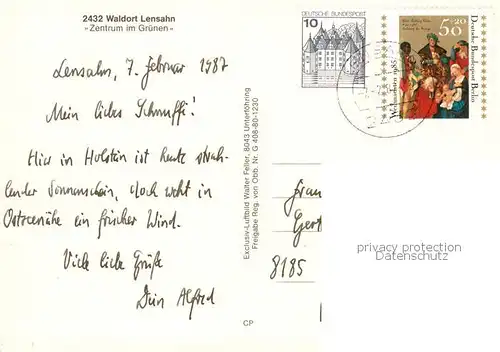 2432 Waldort Lensahn
-Zentrum im Grünen-
Lensahn, 7. Februar 1987
Mein liebes Schnuffi!
Hier in Holstein ist heute strah-
lender Sonnenschein, doch weht in
Ostseenähe ein frischer Wind.
Viele liebe Grüße
Dein Alfred
Exclusiv-Luftbild Walter Feller, 8043 Unterföhring
Freigabe Reg. von Obb. Nr. G 408-80-1230
CP
DEUTSCHE BUNDESPOST
10
50+20
Deutsche Bundespost Berlin
Frau
Gert
8185
privacy protection
Datenschutz